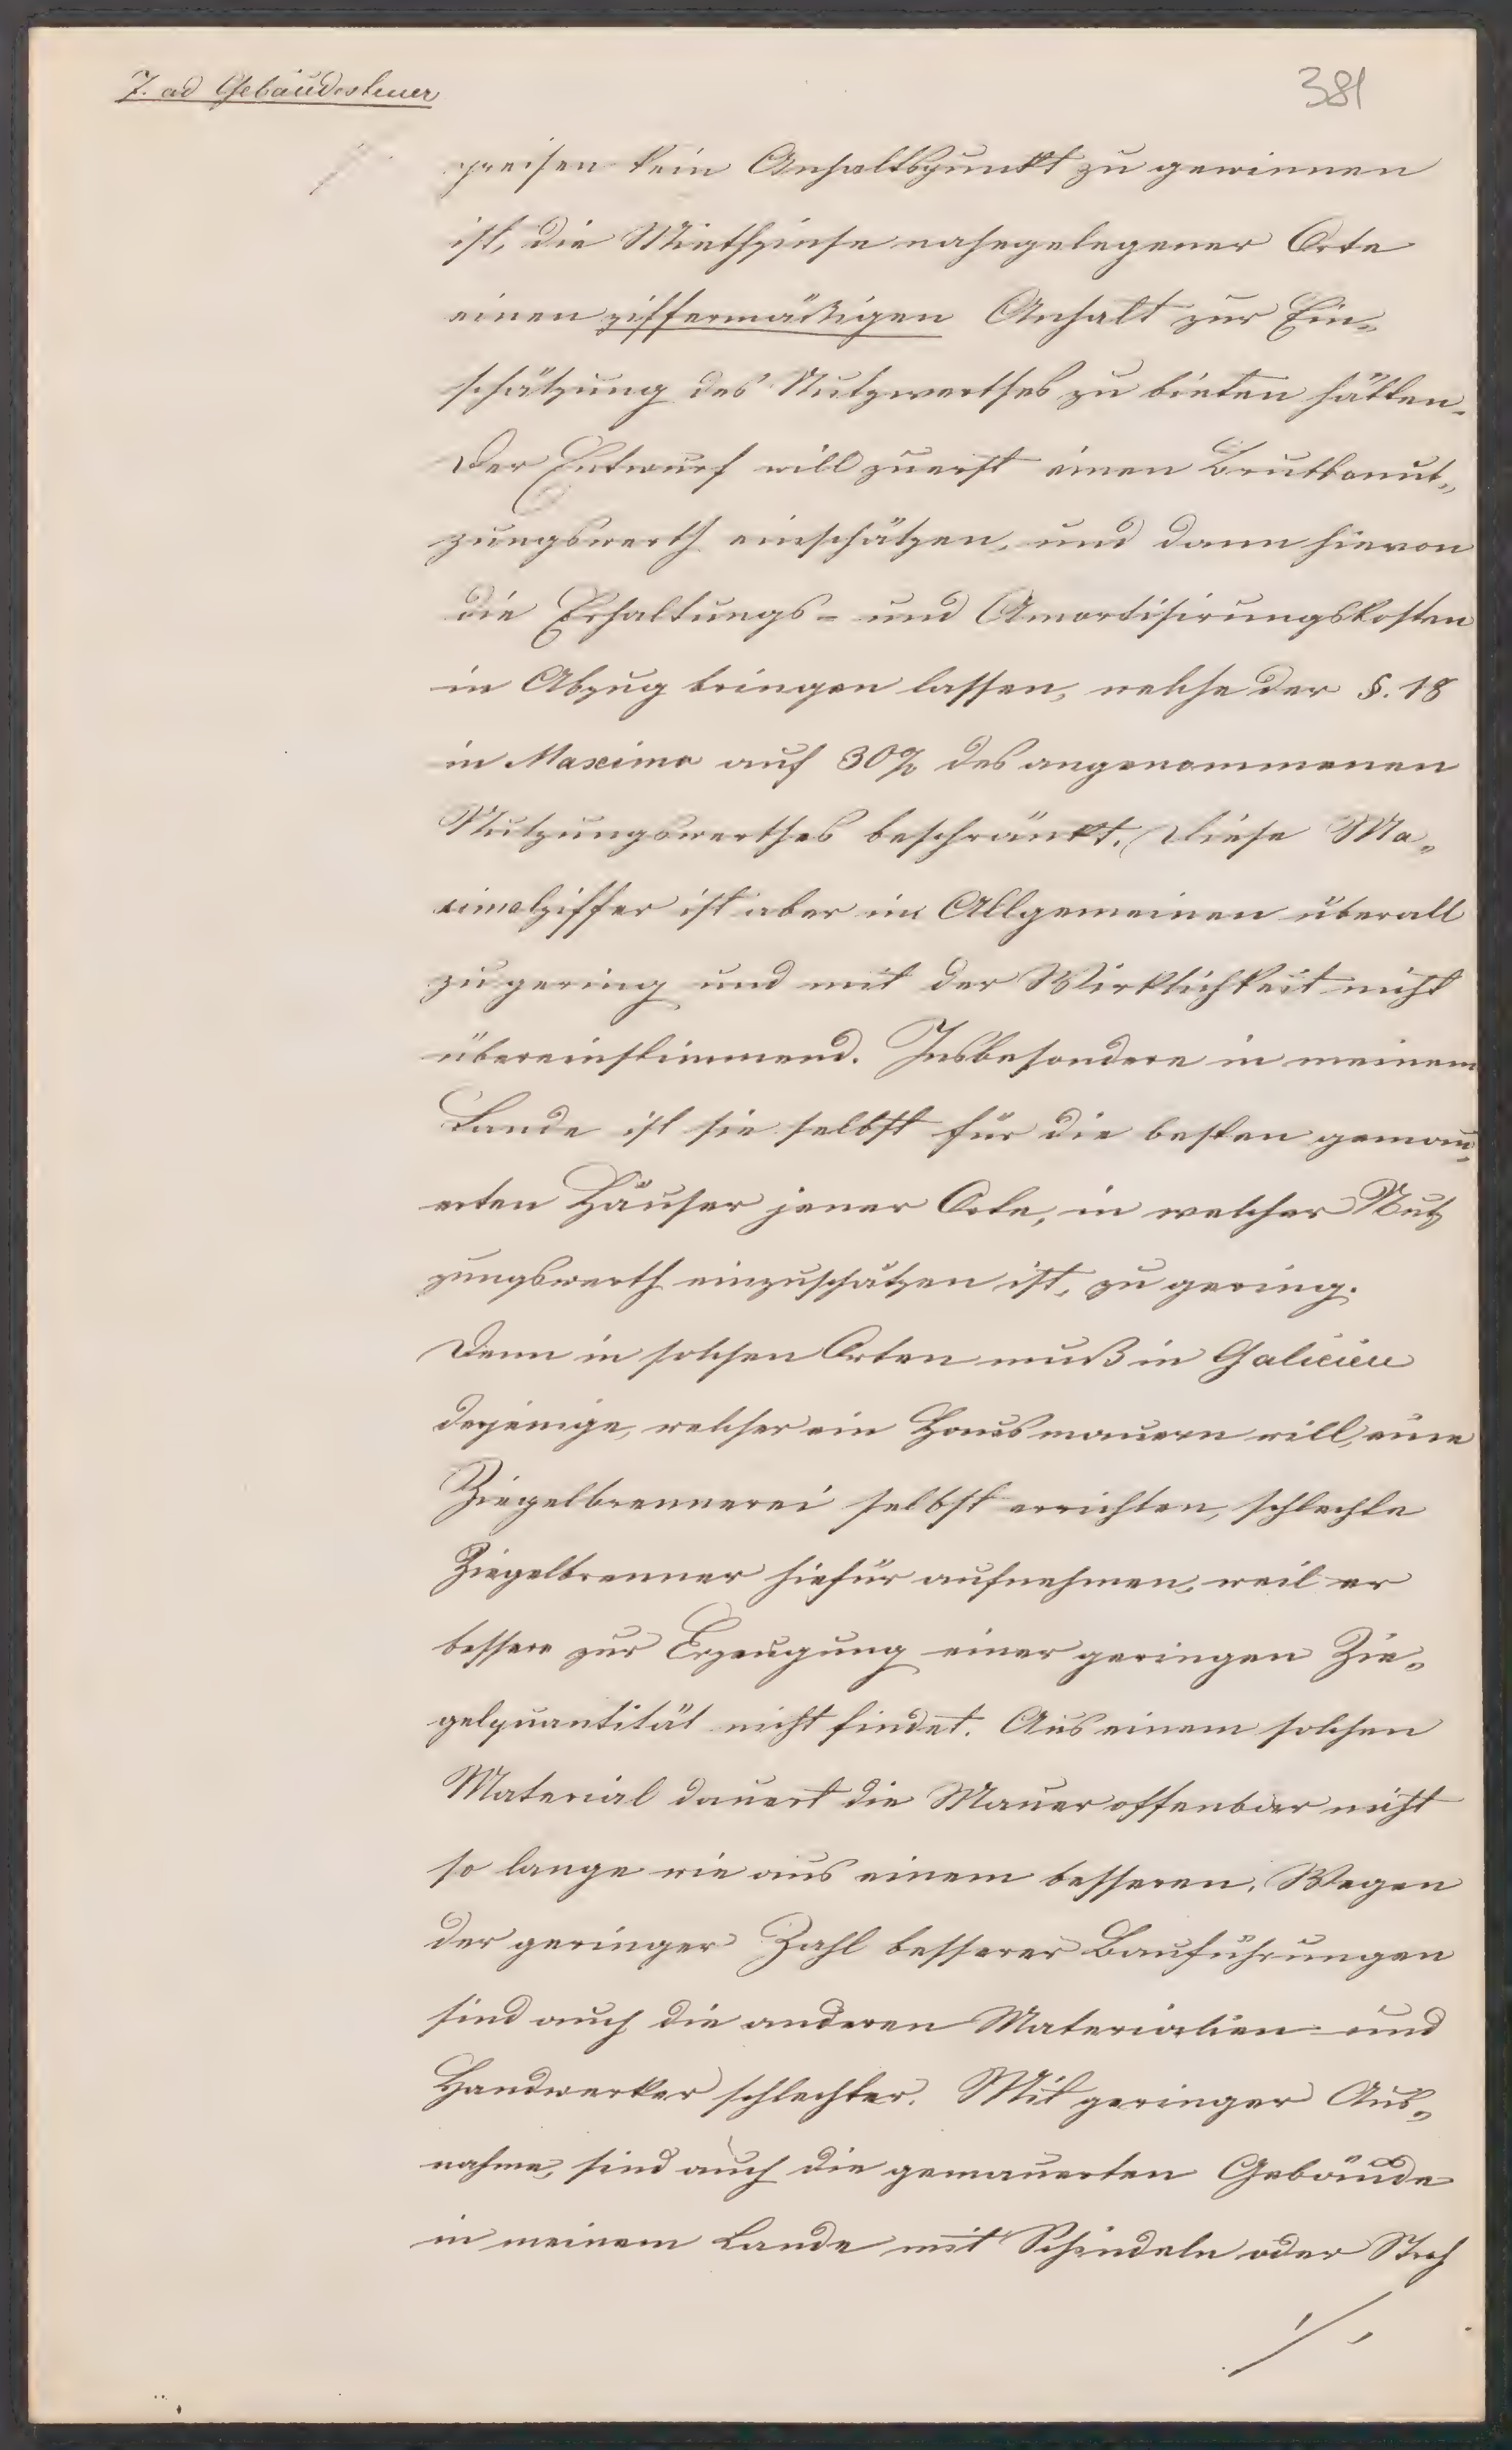 7. ad Gebäudesteuer
381
preisen kein Anhaltspunkt zu gewinnen
ist, die Miethzinse nahegelegener Orte
einen ziffermäßigen Anhalt zur Ein-
schätzung des Nutzwerthes zu bieten hätten.
Der Entwurf will zuerst einen Bruttonut-
zungswerth einschätzen, und dann hievon
die Erhaltungs- und Amortisirungskosten
in Abzug bringen lassen, welche der §. 18
in Maximo auf 30% des angenommenen
Nutzungswerthes beschränkt. Diese Ma-
ximalziffer ist aber im Allgemeinen überall
zu gering und mit der Wirklichkeit nicht
übereinstimmend. Insbesondere in meinem
Lande ist sie selbst für die besten gemau-
erten Häuser jener Orte, in welcher Nut
zungswerth einzuschätzen ist, zu gering.
Denn in solchen Orten muß in Galicien
derjenige, welcher ein Haus mauern will, eine
Ziegelbrennerei selbst errichten, schlechte
Ziegelbrenner hiefür aufnehmen, weil er
bessere zur Erzeugung einer geringen Zie-
gelquantität nicht findet. Aus einem solchen
Material dauert die Mauer offenbar nicht
so lange wie aus einem besseren. Wegen
der geringer Zahl besserer Bauführungen
sind auch die anderen Materialien und
Handwerker schlechter. Mit geringer Aus-
nahme, sind auch die gemauerten Gebäude
in meinem Lande mit Schindeln oder Stroh
./.